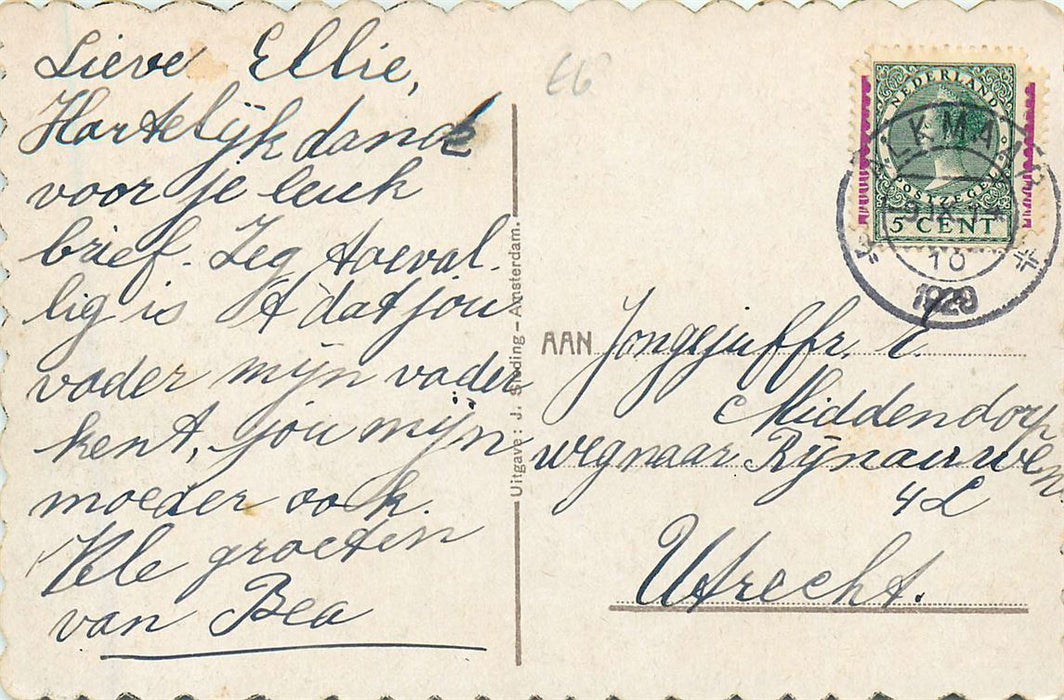 Lieve Ellie,
Hartelijk dank
voor je leuk
brief. Zeg toeval-
lig is 't dat jou
vader mijn vader
kent, jou mijn
moeder ook.
Vele groeten
van Bea
E6
Uitgave: J. Sleding – Amsterdam.
NEDERLAND
POSTZEGEL
5 CENT
ALKMAAR
10
1929
AAN Jongejuffr. E.
Middendorp
weg naar Rijnauwen
4L
Utrecht.